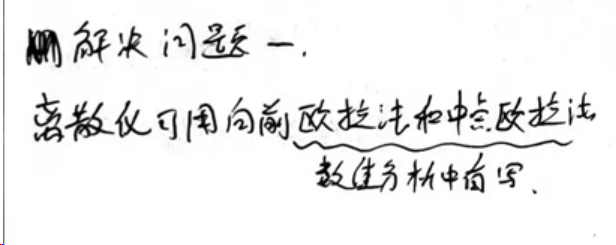 解决问题一.
离散仅可用向前欧拉法和中点欧拉法
数值分析中有写.